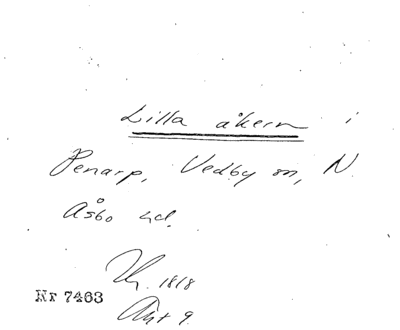 Lilla åkern i
Penarp, Vedby sn, N.
Åsbo hd.
1818
Nr 7463
Akt 9.